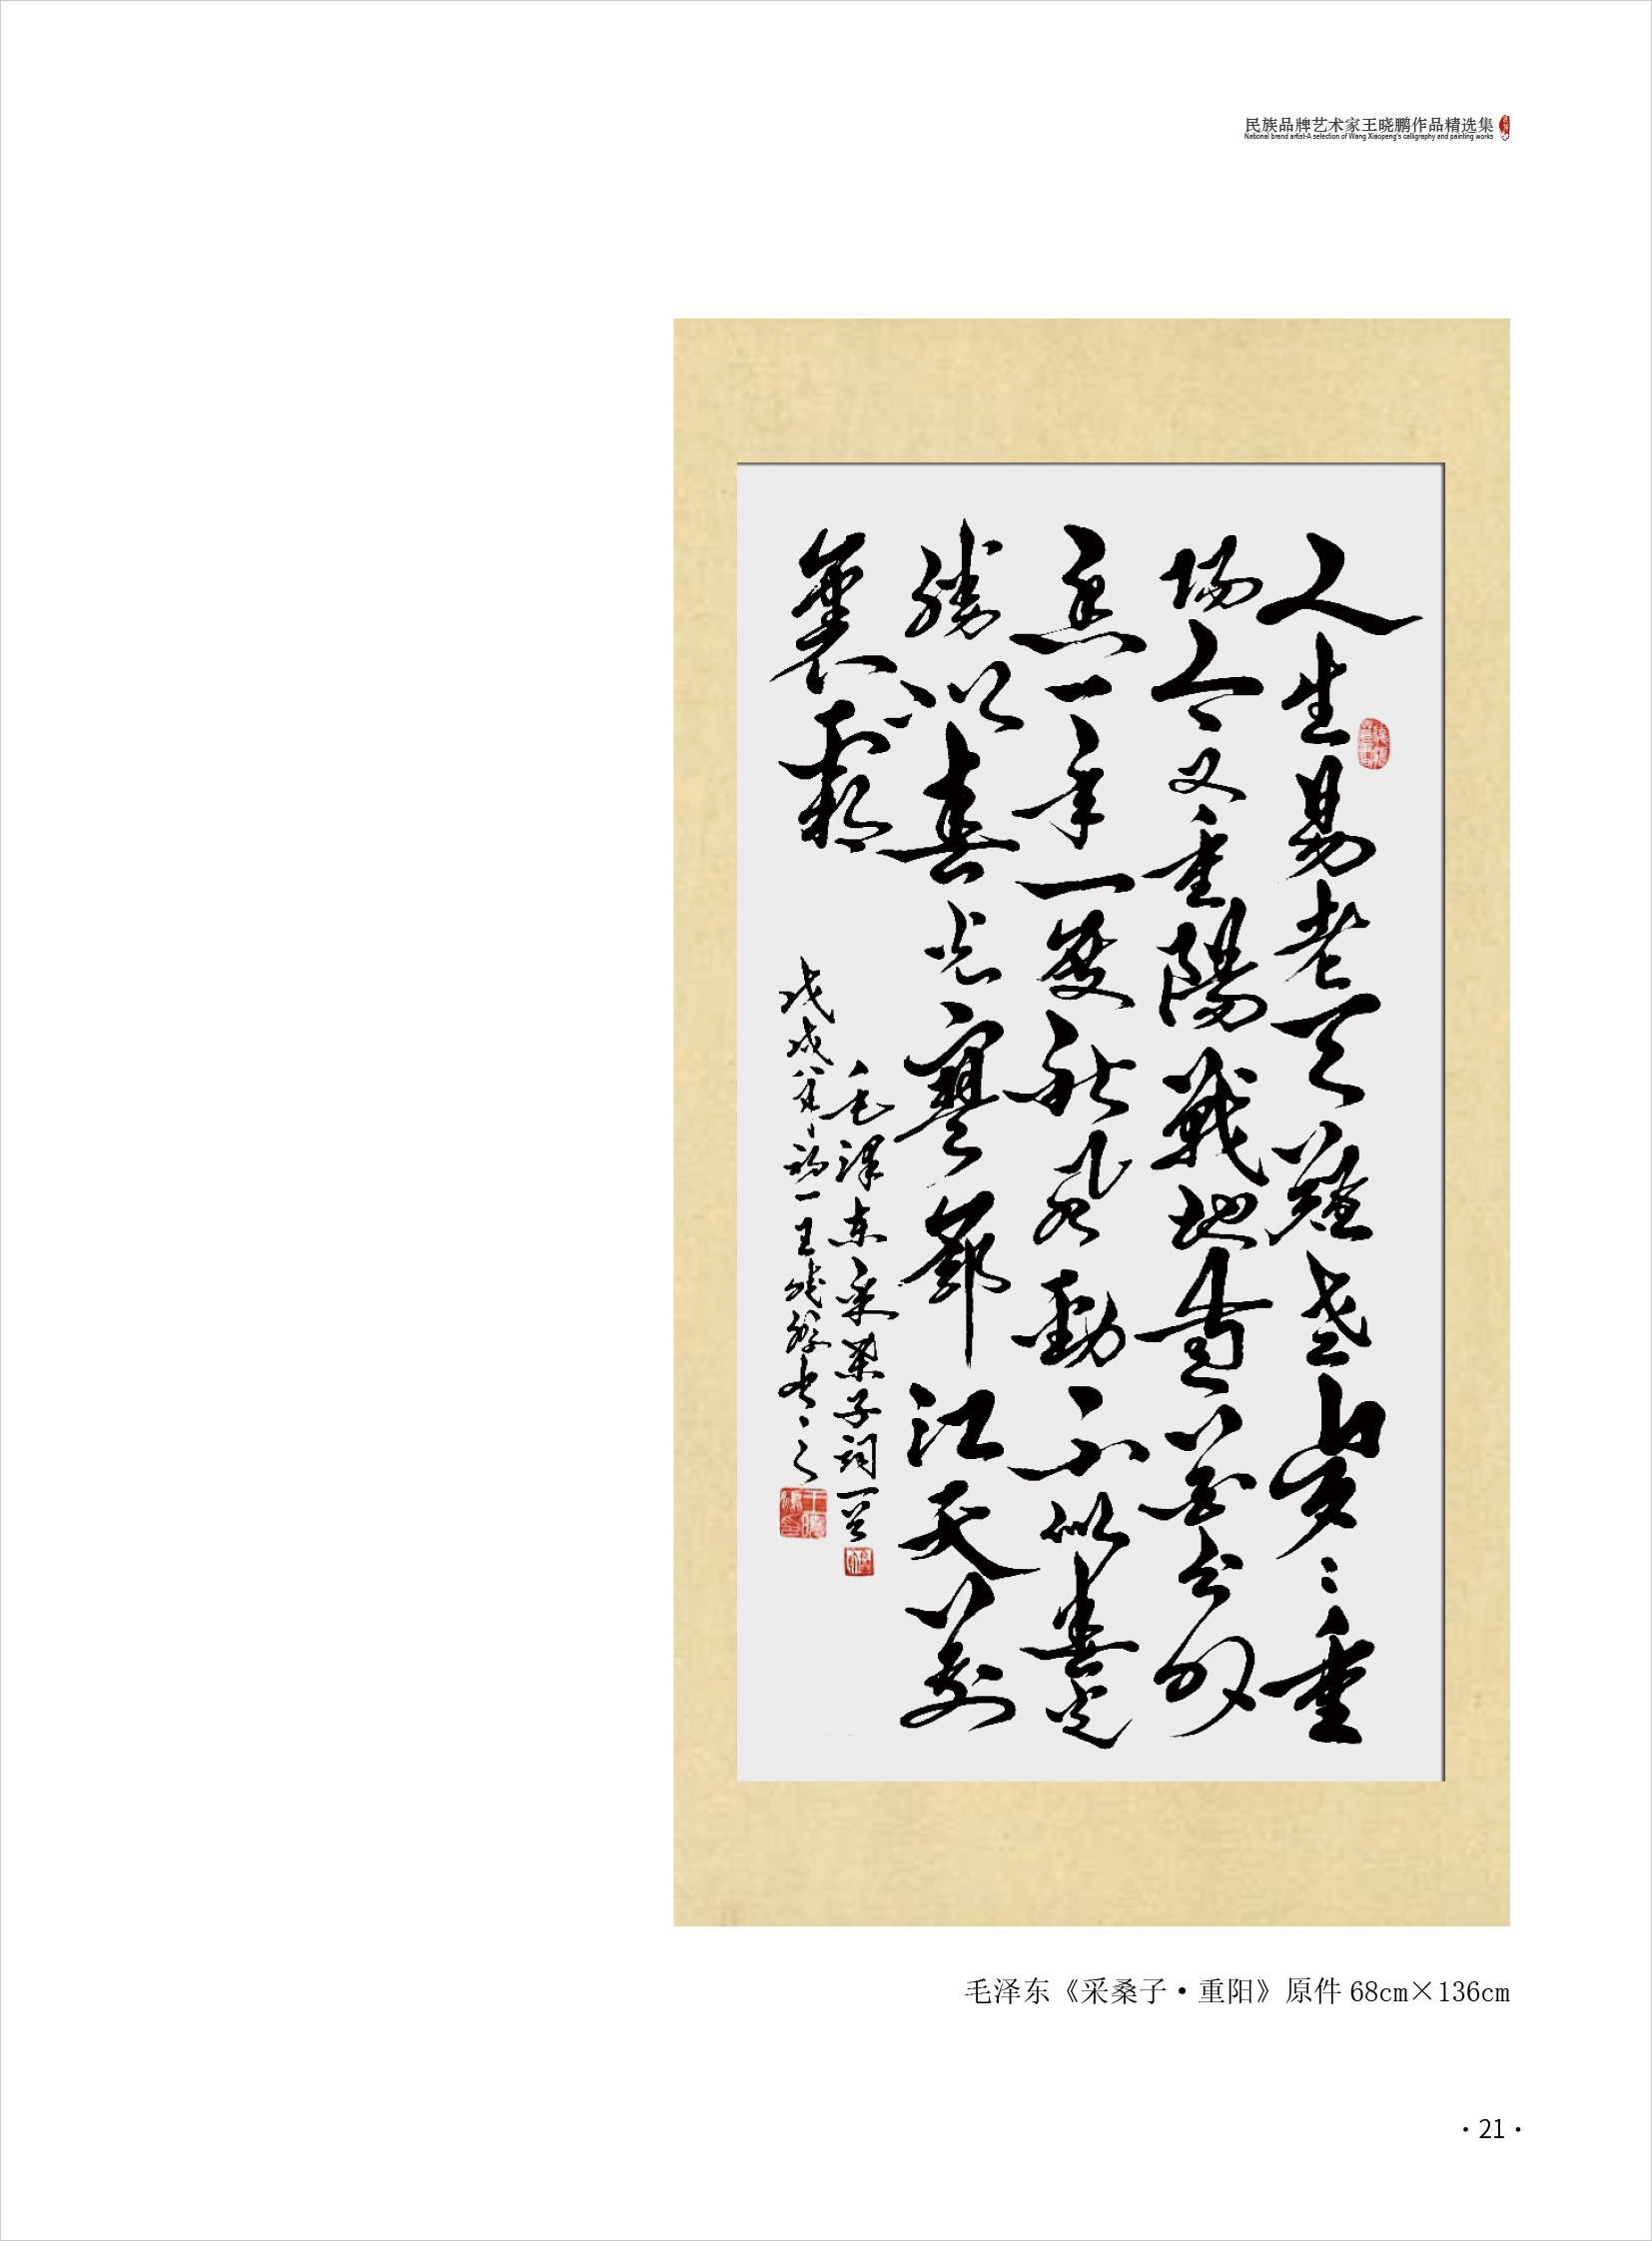 民族品牌艺术家王晓鹏作品精选集
National brand artist-A selection of Wang Xiaopeng's calligraphy and painting works
人生易老天難老歲〻重
陽今又重陽戰地黃花分外
香一年一度秋風勁不似春光
勝似春光寥廓江天萬
裏霜
毛澤東采桑子詞一首
戊戌初一王曉鵬書之
毛泽东《采桑子·重阳》原件 68cm×136cm
·21·